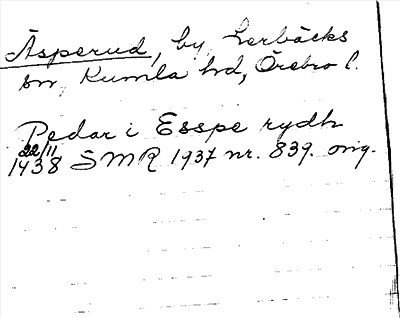 Äsperud, by, Lerbäcks
sn, Kumla hd, Örebro l.
Pedar i Esspe rydh
22/11
1438 SMR 1937 nr. 839. orig.